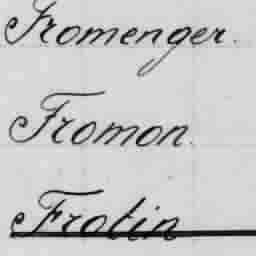 Fromenger.
Fromon.
Frotin